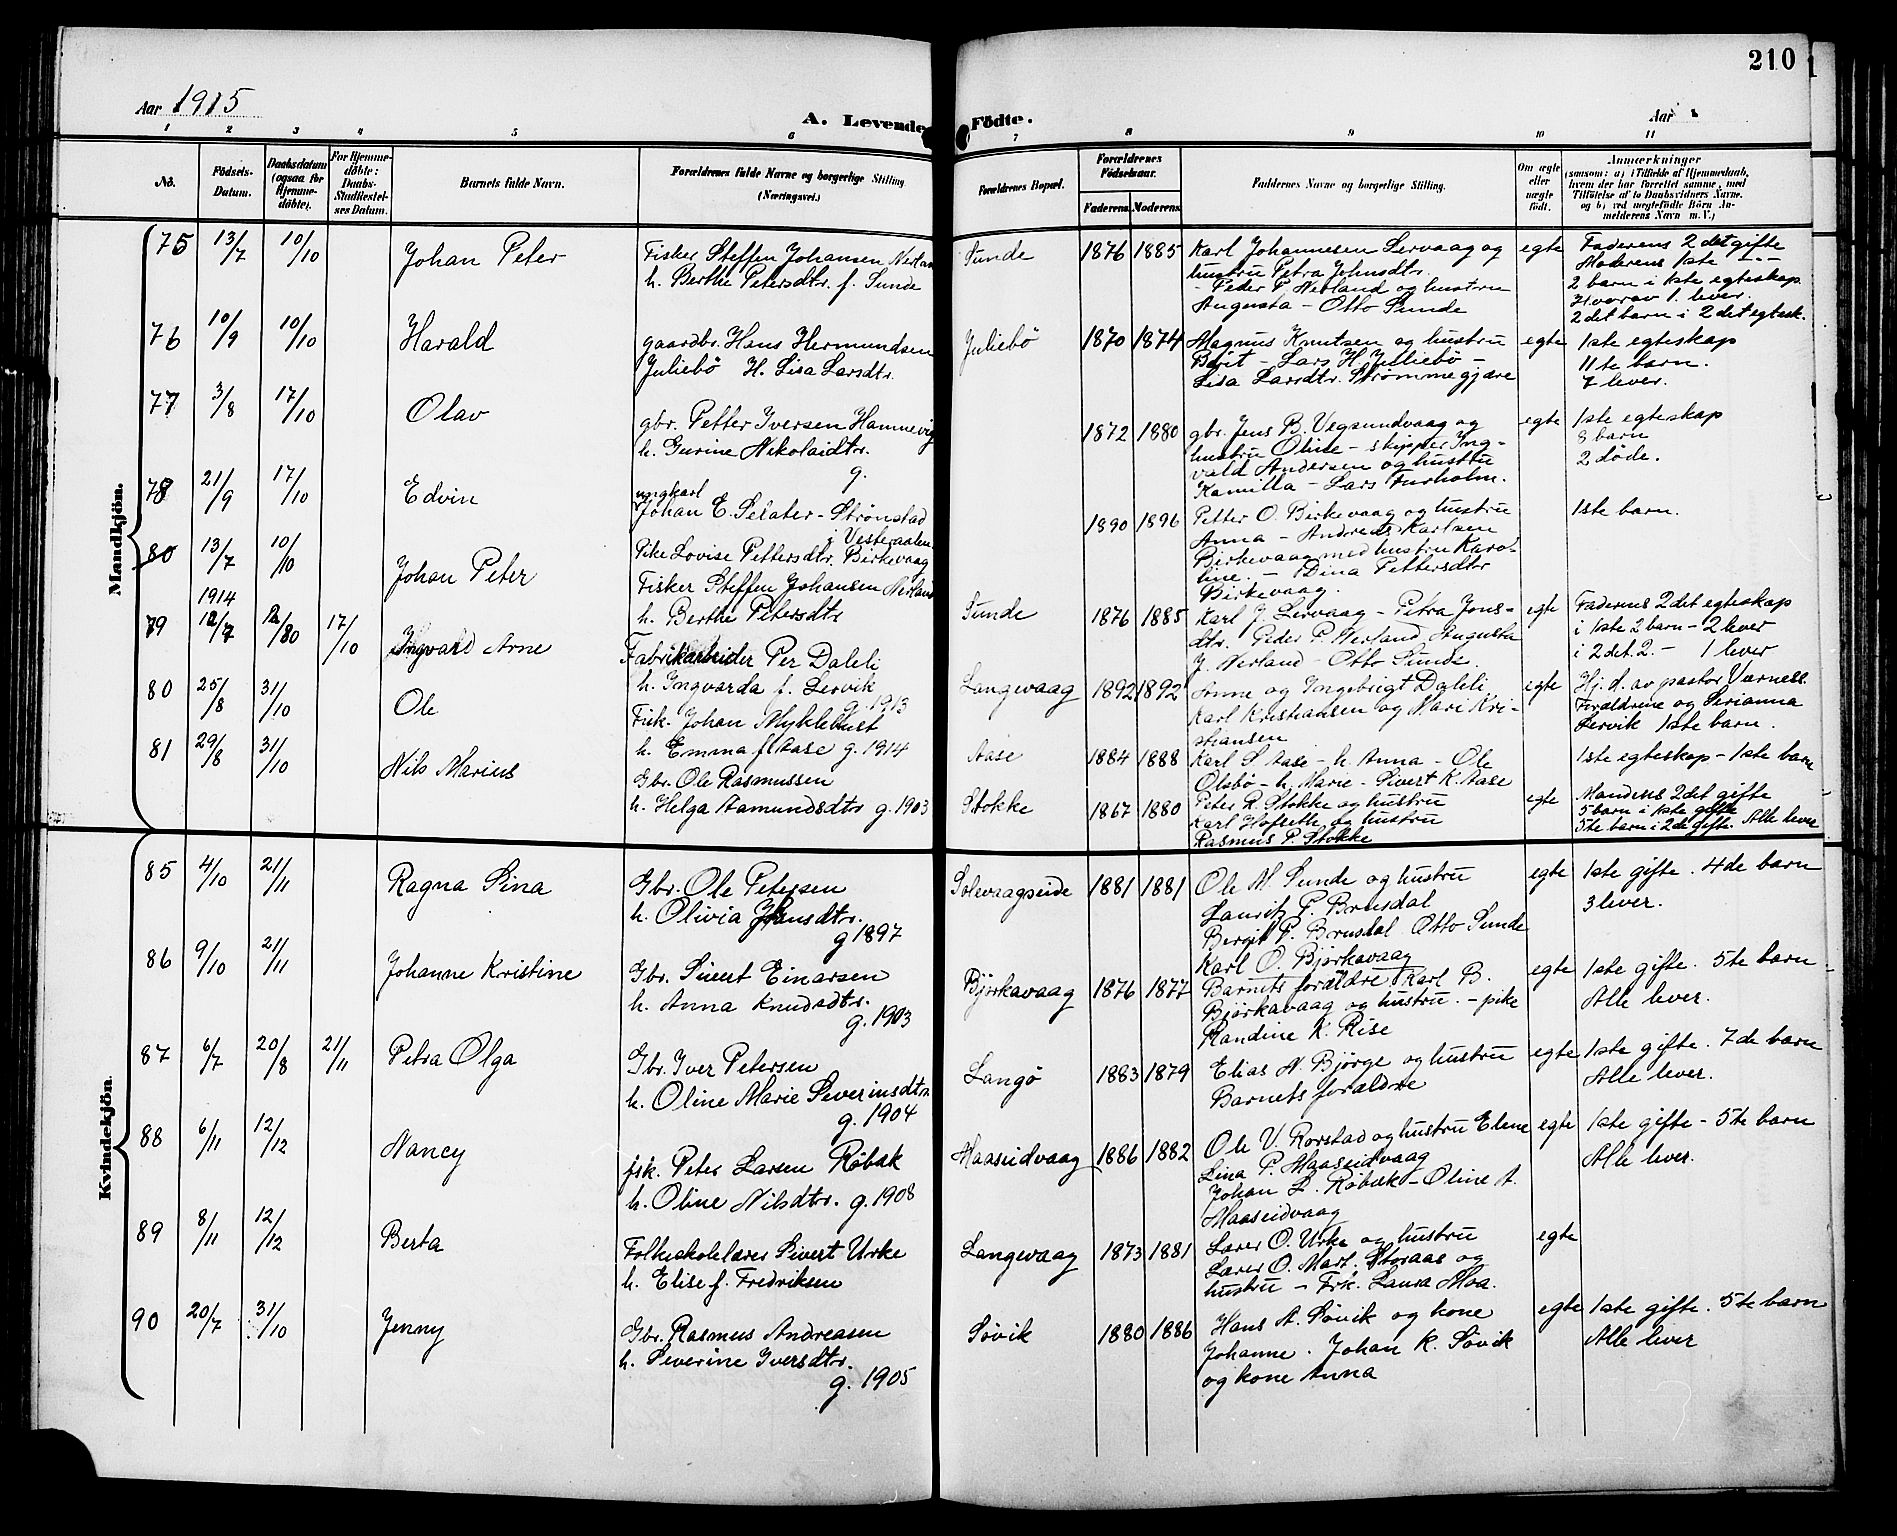 210
Aar 1915
A. Levende Födte.
Aar
1 2 3 4 5 6 7 8 9 10 11
No.
Födsels-Datum.
Daabsdatum (ogsaa for Hjemme-döbte).
For Hjemme-döbte: Daabs-Stadfæstel-ses Datum.
Barnets fulde Navn.
Forældrenes fulde Navne og borgerlige Stilling (Næringsvei.)
Forældrenes Bopæl.
Forældrenes Födselsaar.
Faderens. Moderens.
Faddernes Navne og borgerlige Stilling.
Om ægte eller uægte födt.
Anmærkninger
(saasom: a) i Tilfælde af Hjemmedaab, hvem der har forrettet samme, med Tilföielse af to Daabsvidners Navne, og b) ved uægtefödte Börn An-melderens Navn m. V.)
Mandkjön.
75 13/7 10/10 Johan Peter
Fisker Steffen Johansen Nerland
h. Berthe Petersdtr. f. Sunde
Sunde 1876 1885
Karl Johannesen Lervaag og
hustru Petra Johnsdtr.
- Peder P. Nerland og hustru
Augusta - Otto Sunde
egte
Faderens 2det gifte
Moderens 1ste -"-
2 barn i 1ste egteskap
Hvorav 1 lever.
2det barn i 2det egtesk.
76 10/9 10/10 Harald
gaardbr. Hans Hermundsen
Juliebø H. Lisa Larsdtr.
Juliebø 1870 1874
Magnus Knutsen og hustru
Brit - Lars H. Juliebø -
Lisa Larsdtr. Strømmegjære
egte
1ste egteskap
11te barn.
7 lever.
77 3/8 17/10 Olav
gbr. Petter Iversen Hamnevig
h. Gurine Nikolaidtr.
g.
1872 1880
gbr. Jens B. Vegsundvaag og
hustru Oline - skipper Ing-
vald Andersen og hustru
Kamilla - Lars Furholm.
egte
1ste egteskap
8 barn
2 døde.
78 21/9 17/10 Edvin
ungkarl
Johan E. Selater - Strønstad
i Vesteraalen
Pike Lovise Pettersdtr. Birkevaag
1890 1896
Petter O. Birkevaag og hustru
Anna - Andreas Karlsen
Birkevaag med hustru Karo-
line. - Dina Pettersdtr
Birkevaag.
1ste barn.
80 13/7 10/10 Johan Peter
Fisker Steffen Johansen Nerland
h. Berthe Petersdtr
Sunde 1876 1885
Karl J. Lervaag - Petra Jons-
dtr. Peder P. Nerland, Augusta
J. Nerland - Otto Sunde.
egte
Faderens 2det egteskap
i 1ste 2 barn - 2 lever
i 2det 2. - 1 lever
1914
79 12/7 17/10 Ingvald Arne
Fabrikarbeider Per Daleli
h. Ingvarda f. Lervik
g. 1913
Langevaag 1892 1892
Anne og Ingebrigt Daleli
Karl Kristiansen og Mari Kri-
stiansen
egte
Hj. d. av pastor Varnes.
Forældrene og Serianna
Lervik 1ste barn.
80 25/8 31/10 Ole
Fisk. Johan Myklebust
h. Emma f. Aase g. 1914
Aase 1884 1888
Karl S. Aase - h. Anna - Ole
Olsbø - h. Marie - Sivert K. Aase
1ste egteskap - 1ste barn
81 29/8 31/10 Nils Marius
Gbr. Ole Rasmussen
h. Helga Aamundsdtr g. 1903
Stokke 1867 1880
Peter R. Stokke og hustru
Karl Hofseth og hustru
Rasmus P. Stokke
egte
Mandens 2det gifte
5 barn i 1ste gifte
5te barn i 2de gifte. Alle lever
Kvindekjön.
85 4/10 21/11 Ragna Sina
Gbr. Ole Petersen
h. Olivia Jonsdtr.
g 1897
Solevaagseide 1881 1881
Ole M. Sunde og hustru
Lauritz P. Brusdal
Bergit P. Brusdal Otto Sunde
egte
1ste gifte. 4de barn
3 lever.
86 9/10 21/11 Johanne Kristine
Gbr. Sivert Einarsen
h. Anna Knudsdtr.
g. 1903
Bjørkavaag 1876 1877
Karl O. Bjørkavaag
Barnets forældre Karl B.
Bjørkavaag og hustru. - pike
Randine K. Rise
egte
1ste gifte. 5te barn
Alle lever.
87 6/7 20/8 21/11 Petra Olga
Gbr. Iver Petersen
h. Oline Marie Severinsdtr.
g. 1904
Langø 1883 1879
Elias N. Bjørge og hustru
Barnets forældre
egte
1ste gifte. 7de barn
Alle lever.
88 6/11 12/12 Nancy
fsk. Peter Larsen Røbæk
h. Oline Nilsdtr. g. 1908
Maaseidvaag 1886 1882
Ole V. Rorstad og hustru Elene
Lina P. Maaseidvaag
Johan L. Røbæk - Oline A.
Maaseidvaag
egte
1ste gifte - 5te barn
Alle lever.
89 8/11 12/12 Berta
Folkeskolelærer Sivert Urke
h. Elise f. Fredriksen
Langevaag 1873 1881
Lærer O. Urke og hustru
Lærer O. Mart. Storaas og
hustru - Frk. Laura Moa.
egte
90 20/7 31/10 Jenny
Gbr. Rasmus Andreasen
h. Severine Iversdtr.
g. 1905
Søvik 1880 1886
Hans A. Søvik og kone
Johanne. Johan K. Søvik
og kone Anna
egte
1ste gifte. 5te barn
Alle lever